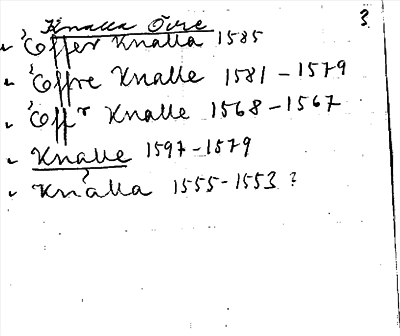 Knalla Övre 3
" Offer Knalla 1585
" Öffre Knalle 1581 - 1579
" Öffr Knalle 1568 - 1567
" Knalle 1597 - 1579
" Knalla 1555 - 1553 ?